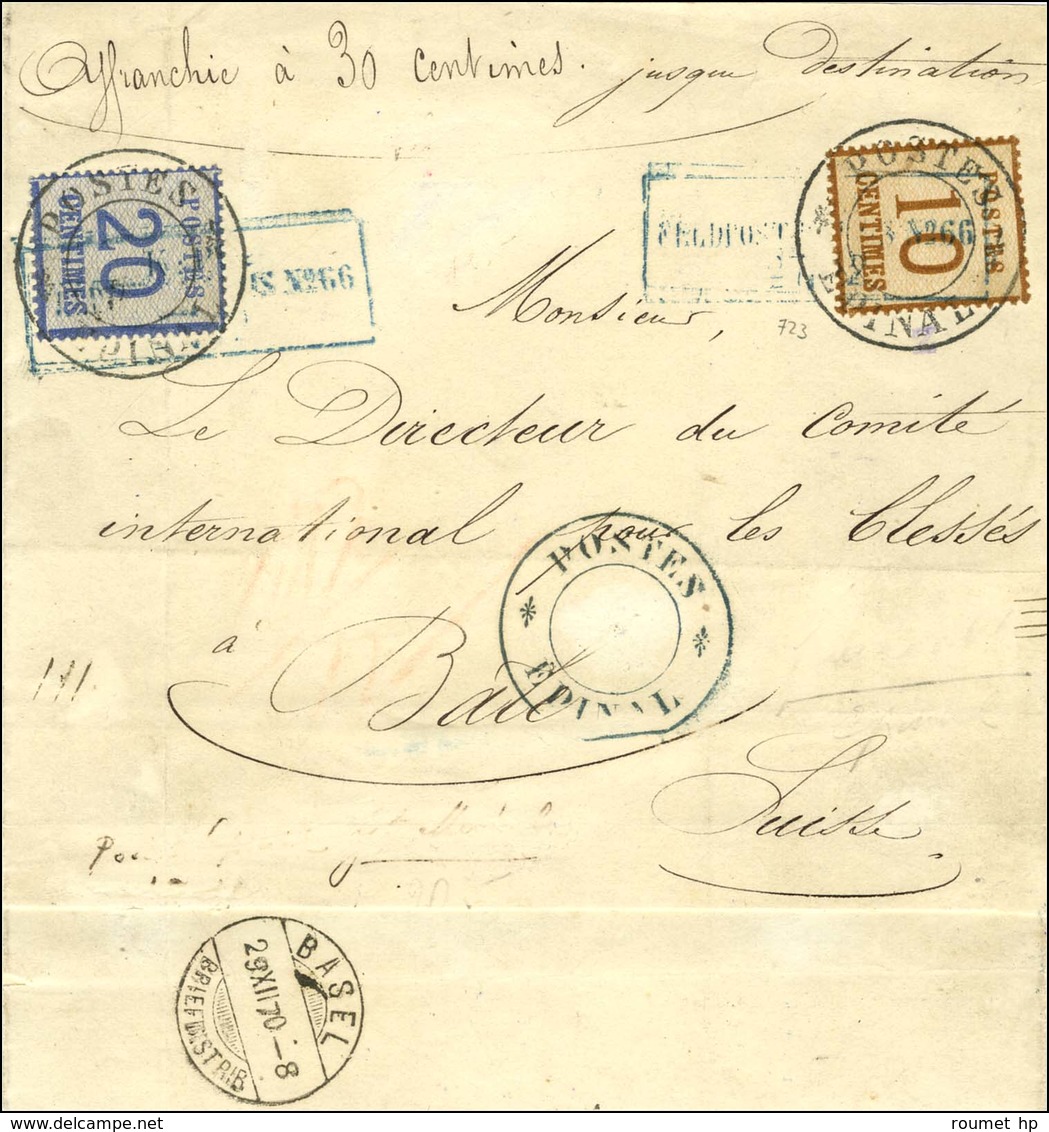 Affranchie à 30 centimes. jusque destination
POSTES
POSTES
20
CENTIMES
POSTES
* POSTES
EPINAL
POSTES
10
CENTIMES
POSTES
No 66
FELDPOST
No 66
723
Monsieur,
Le Directeur du Comité
international pour les blessés
* POSTES *
EPINAL
à Bâle
Suisse
BASEL
29 XII 70 - 8
BRIEFDISTRIB
roumet hp